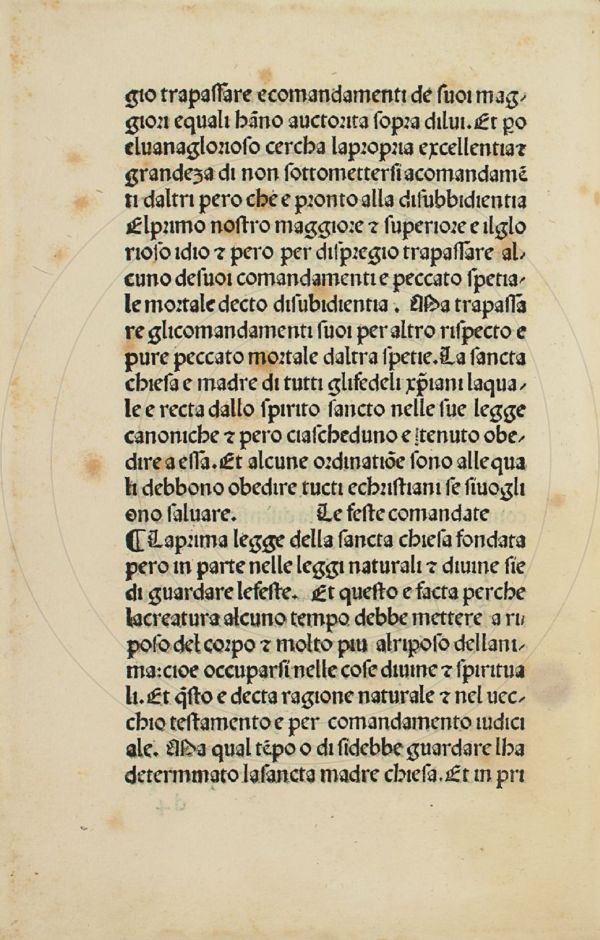 gio trapassare ecomandamenti de suoi mag⸗
giori equali hãno auctorita sopra dilui. Et ꝑo
eluanaglorioso cercha lapropria excellentia ⁊
grandeza di non sottomettersi acomandamẽ
ti daltri pero che e pronto alla disubbidientia
Elprimo nostro maggiore ⁊ superiore e ilglo
rioso idio ⁊ pero per dispregio trapassare al⸗
cuno desuoi comandamenti e peccato spetia⸗
le mortale decto disubidientia. Ma trapassa
re glicomandamenti suoi per altro rispecto e
pure peccato mortale daltra spetie. La sancta
chiesa e madre di tutti glifedeli xp̃iani laqua⸗
le e recta dallo spirito sancto nelle sue legge
canoniche ⁊ pero ciascheduno e tenuto obe⸗
dire a essa. Et alcune ordinatiõe sono alle qua
li debbono obedire tucti echristiani se siuogli
ono saluare. Le feste comandate
¶ Laprima legge della sancta chiesa fondata
pero in parte nelle leggi naturali ⁊ diuine sie
di guardare lefeste. Et questo e facta perche
lacreatura alcuno tempo debbe mettere a ri
poso del corpo ⁊ molto piu alriposo dellani⸗
ma: cioe occuparsi nelle cose diuine ⁊ spiritua
li. Et q̃sto e decta ragione naturale ⁊ nel uec⸗
chio testamento e per comandamento iudici
ale. Ma qual tẽpo o di sidebbe guardare lha
determinato lasancta madre chiesa. Et in pri